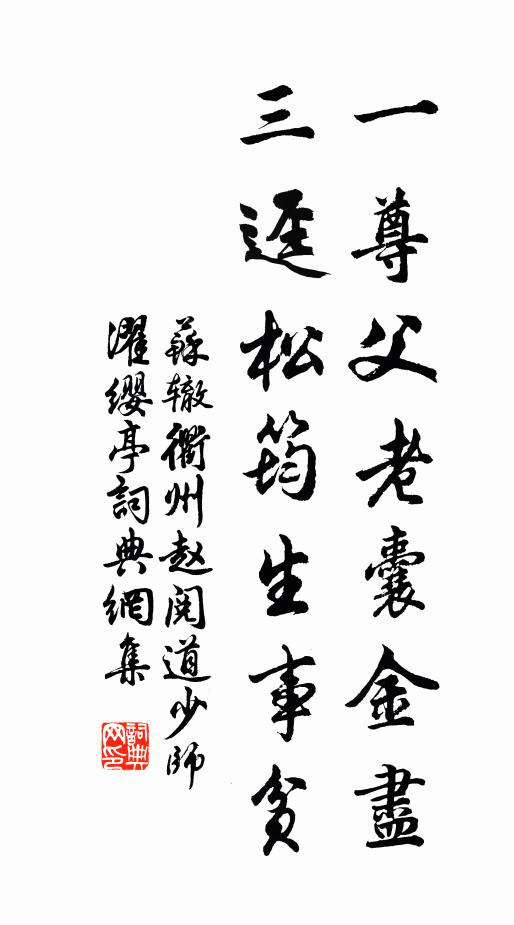 一尊父老囊金盡
三逕松筠生事貧
蘇轍衢州赵阅道少師
濯缨亭詞典網集
詞典网印